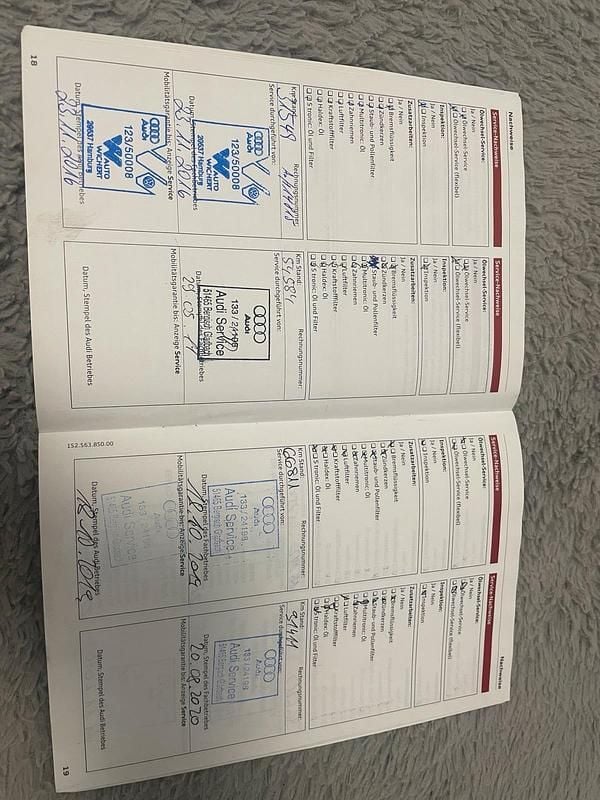 Nachweise
Service-Nachweise
Ölwechsel-Service:
Ja / Nein
Ölwechsel-Service
Ölwechsel-Service (flexibel)
Inspektion:
Ja / Nein
Inspektion
Zusatzarbeiten:
Ja / Nein
Bremsflüssigkeit
Zündkerzen
Staub- und Pollenfilter
Multitronic: Öl
Zahnriemen
Luftfilter
Kraftstofffilter
Haldex: Öl
S tronic: Öl und Filter
Km Stand:
Rechnungsnummer:
Service durchgeführt von:
Audi
123/50008
AUTO
WICHERT
Mobilitätsgarantie bis: Anzeige Service
Audi
123/50008
AUTO
WICHERT
20537 Hamburg
23.11.2016
18
Service-Nachweise
Ölwechsel-Service:
Ja / Nein
Ölwechsel-Service
Ölwechsel-Service (flexibel)
Inspektion:
Ja / Nein
Inspektion
Zusatzarbeiten:
Ja / Nein
Bremsflüssigkeit
Zündkerzen
Staub- und Pollenfilter
Multitronic: Öl
Zahnriemen
Luftfilter
Kraftstofffilter
Haldex: Öl
S tronic: Öl und Filter
Km Stand:
Rechnungsnummer:
Service durchgeführt von:
Audi
133 / 24198
Audi Service
51465 Bergisch Gladbach
Mobilitätsgarantie bis: Anzeige Service
Datum, Stempel des Audi Betriebes
152.563.850.00
Service-Nachweise
Ölwechsel-Service:
Ja / Nein
Ölwechsel-Service
Ölwechsel-Service (flexibel)
Inspektion:
Ja / Nein
Inspektion
Zusatzarbeiten:
Ja / Nein
Bremsflüssigkeit
Zündkerzen
Staub- und Pollenfilter
Multitronic: Öl
Zahnriemen
Luftfilter
Kraftstofffilter
Haldex: Öl
S tronic: Öl und Filter
Km Stand:
Rechnungsnummer:
Service durchgeführt von:
Audi
133 / 24198
Audi Service
51465 Bergisch Gladbach
Datum, Stempel des Fachbetriebes
Mobilitätsgarantie bis: Anzeige Service
Datum, Stempel des Audi Betriebes
18.10.2019
Nachweise
Service-Nachweise
Ölwechsel-Service:
Ja / Nein
Ölwechsel-Service
Ölwechsel-Service (flexibel)
Inspektion:
Ja / Nein
Inspektion
Zusatzarbeiten:
Ja / Nein
Bremsflüssigkeit
Zündkerzen
Staub- und Pollenfilter
Multitronic: Öl
Zahnriemen
Luftfilter
Kraftstofffilter
Haldex: Öl
S tronic: Öl und Filter
Km Stand:
Rechnungsnummer:
91411
Service durchgeführt von:
Audi
133 / 24198
Audi Service
51465 Bergisch Gladbach
Datum, Stempel des Fachbetriebes
20.08.2020
Mobilitätsgarantie bis: Anzeige Service
Datum, Stempel des Audi Betriebes
19